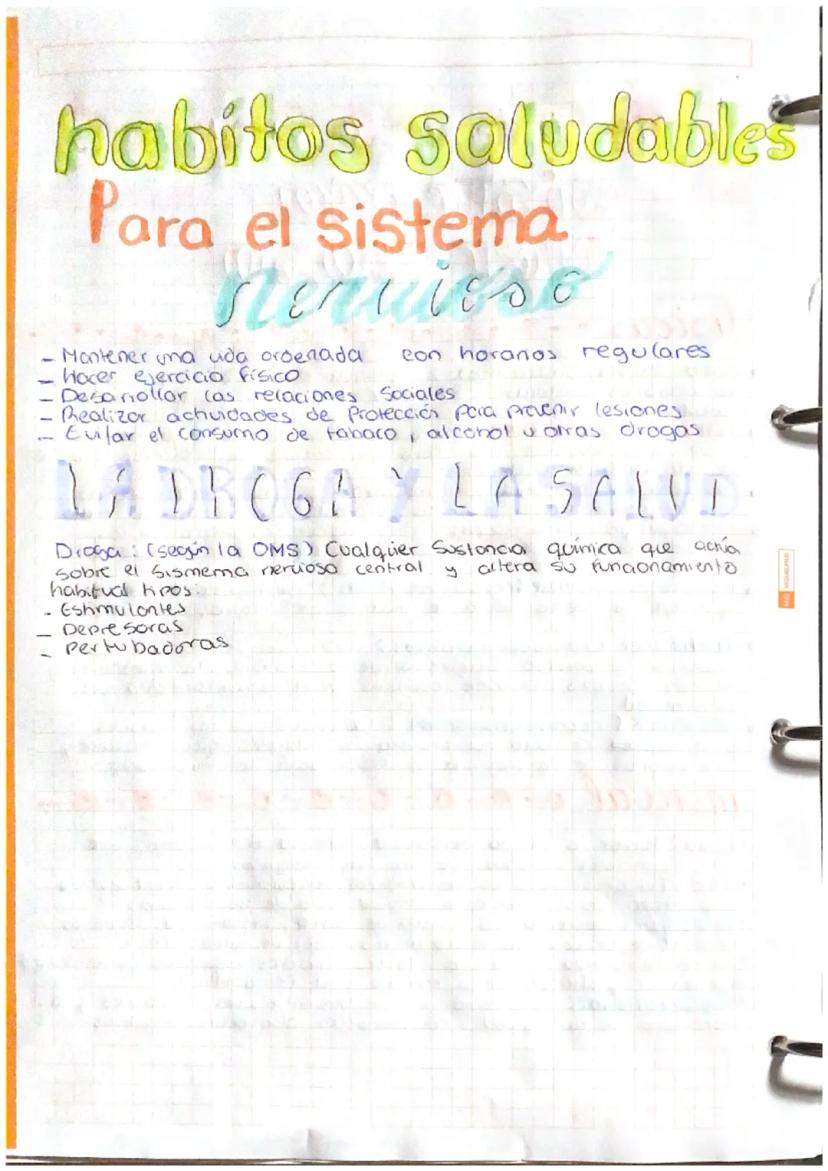 habitos saludables
Para el sistema
nervioso
- Mantener una vida ordenada con horarios regulares
- hacer ejercicio físico
- Desarrollar las relaciones sociales
- Realizar actividades de Protección para prevenir lesiones
- Evitar el consumo de tabaco, alcohol u otras drogas
LA DROGA Y LA SALUD
Droga: (según la OMS) Cualquier sustancia química que actúa
sobre el sismema nervioso central y altera su funcionamiento
habitual tipos:
- Estimulantes
- Depresoras
- Pertubadoras